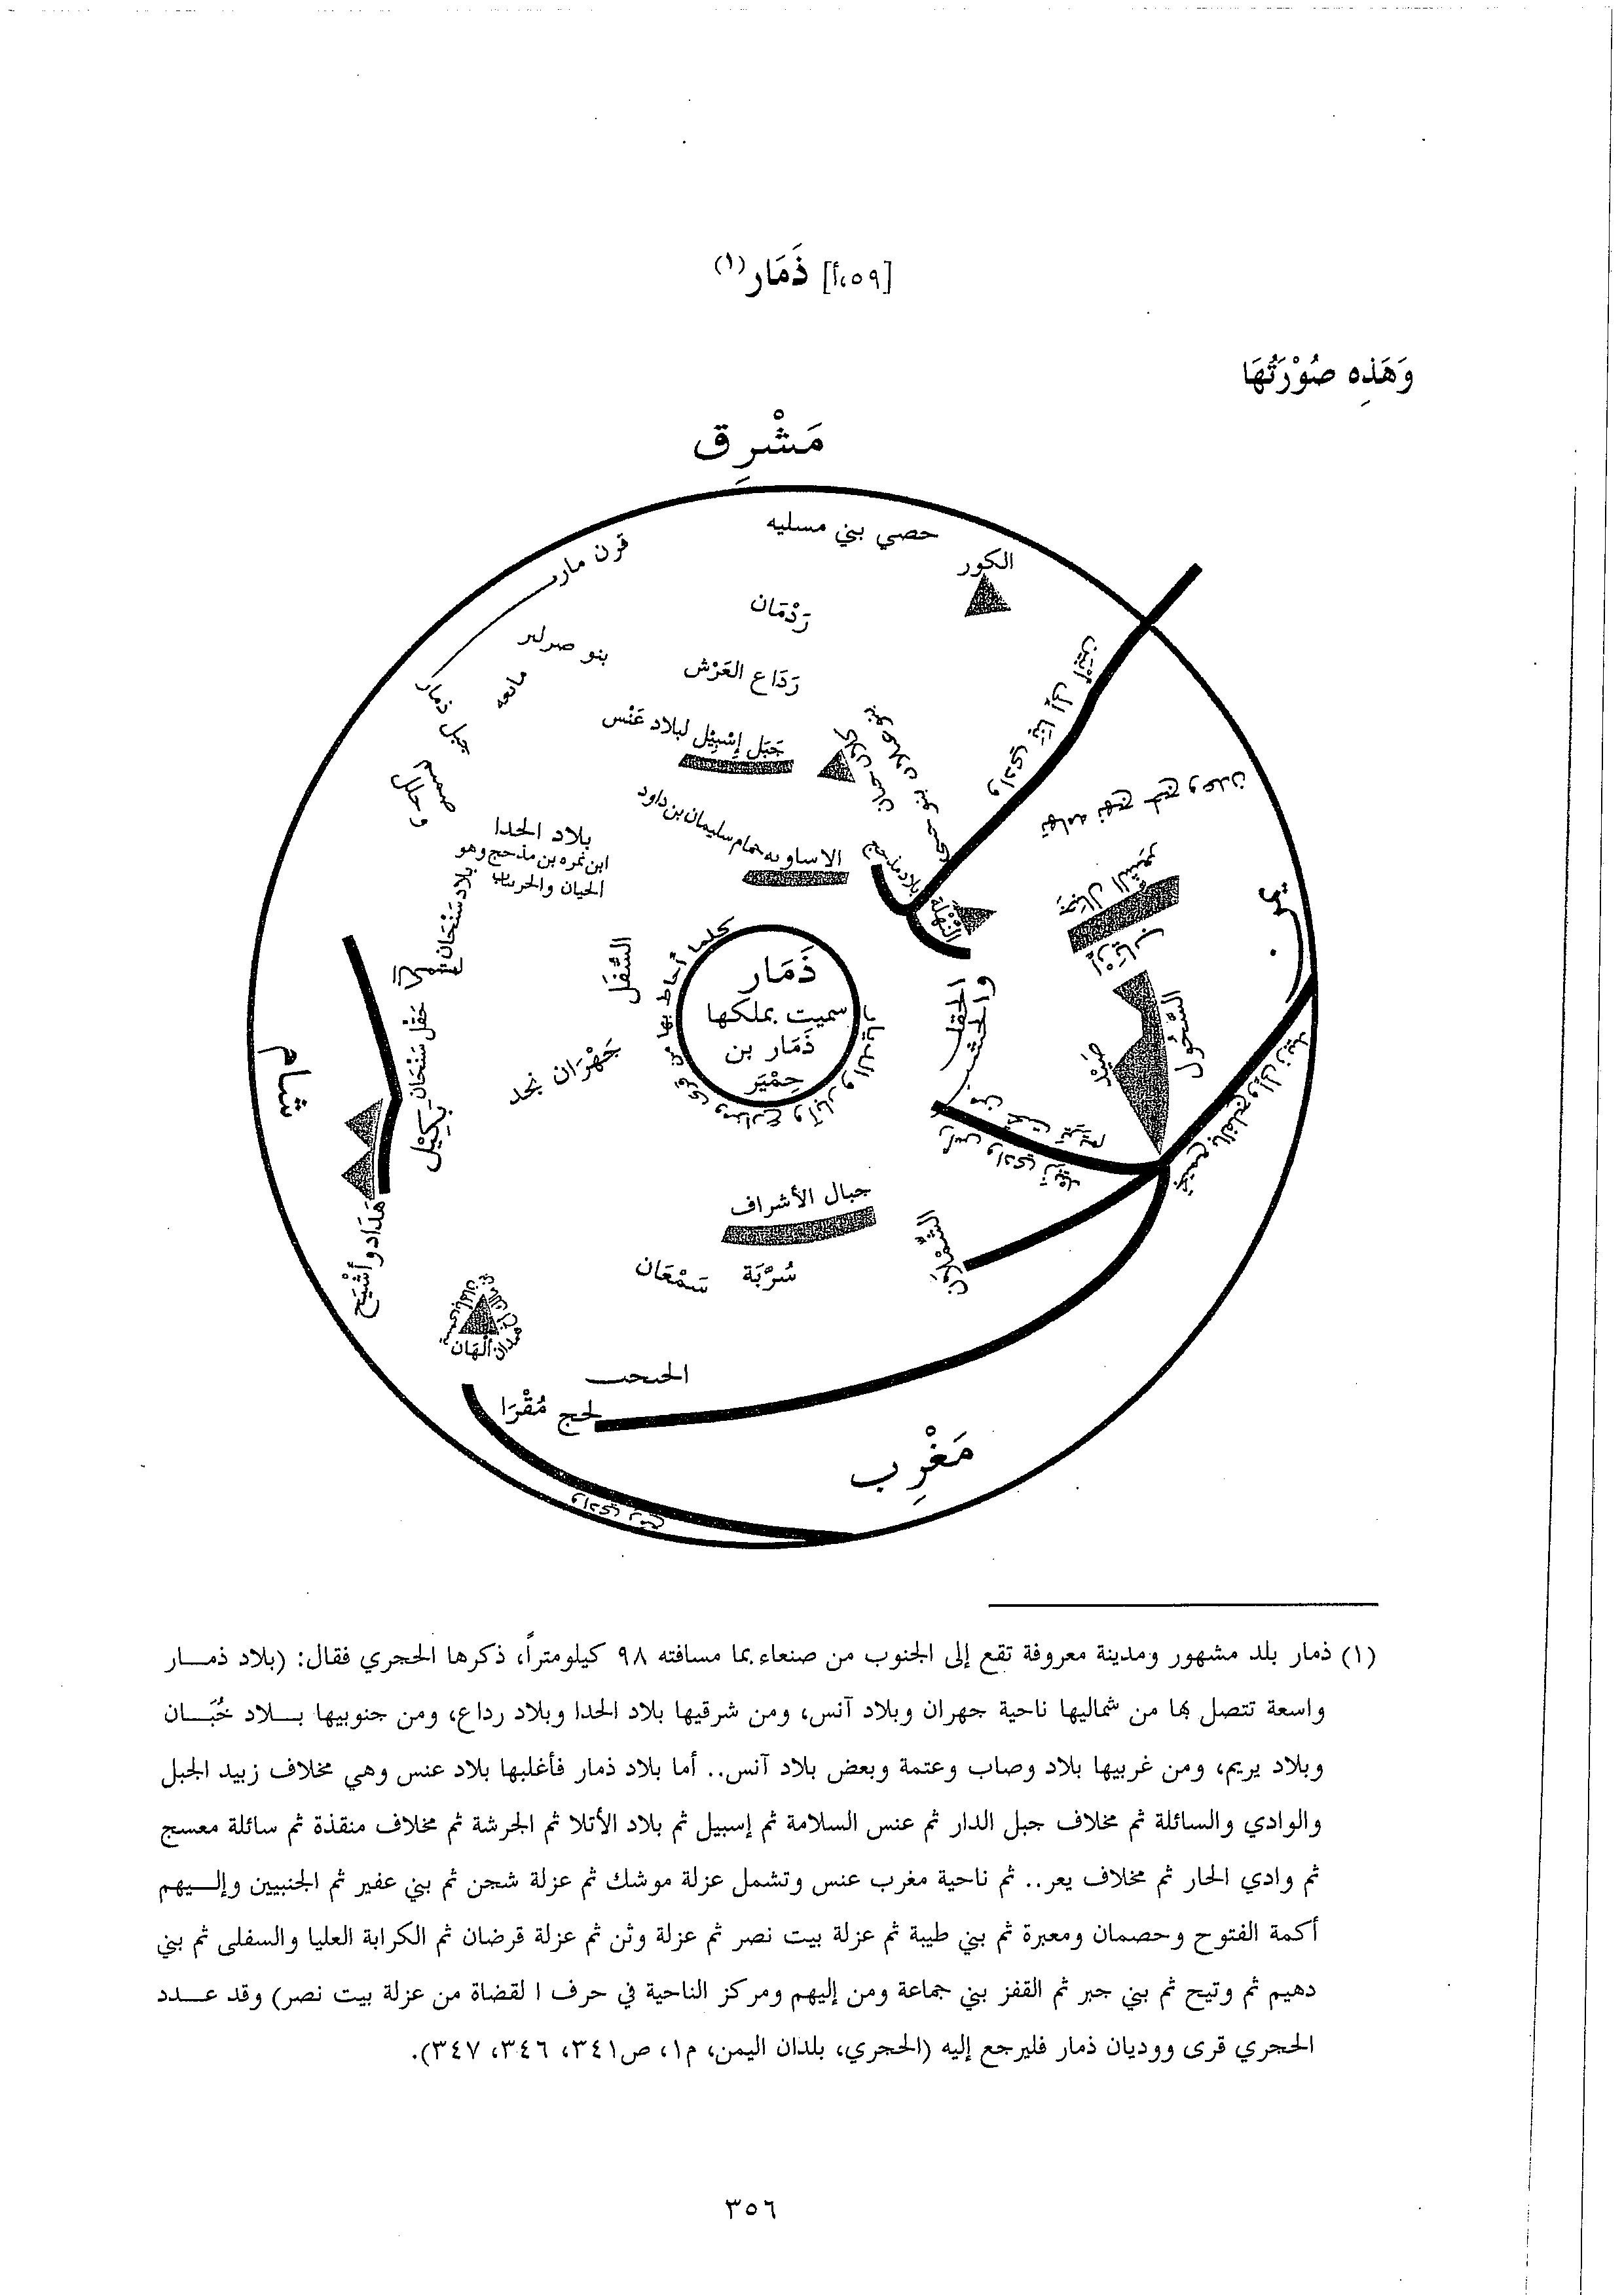 [٥٩،أ] ذَمَار(١)
وَهَذِه صُوْرَتُهَا
مَشْرِق
حصي بني مسليه
الكور
قرن مارب
رَدْمَان
بنو
رَدَاع العَرْش
جبل ذمار
جَبَل إِسْبِيْل لبلاد عَنْس
وادي بَنَا إلى أَبْيَن
بلاد الحدا
ابن نمره بن مذحج وهو
الحيان والحرساب
حمام سليمان بن داود
بلاد مذحج
بلاد سَنْحَان
حَقْل سَنْحَان
السُّفَل
ذَمَار
سميت بملكها
ذَمَار بن
حِمْيَر
كلما أحاط بها من قرى ومزارع وآبار والديار
جَهْرَان نجد
شام
بَكِيْل
هَدَاد وأشْيَح
الحقل
السَّحُول
صَيْد
جبال الأشراف
سُرْبَة
سَمْعَان
لحج مُقْرَا
مَغْرِب
(١) ذمار بلد مشهور ومدينة معروفة تقع إلى الجنوب من صنعاء بما مسافته ٩٨ كيلومتراً، ذكرها الحجري فقال: (بلاد ذمـــار
واسعة تتصل بها من شماليها ناحية جهران وبلاد آنس، ومن شرقيها بلاد الحدا وبلاد رداع، ومن جنوبيها بـــلاد خُبَـــان
وبلاد يريم، ومن غربيها بلاد وصاب وعتمة وبعض بلاد آنس.. أما بلاد ذمار فأغلبها بلاد عنس وهي مخلاف زبيد الجبل
والوادي والسائلة ثم مخلاف جبل الدار ثم عنس السلامة ثم إسبيل ثم بلاد الأتلا ثم الجرشة ثم مخلاف منقذة ثم سائلة معسج
ثم وادي الحار ثم مخلاف يعر.. ثم ناحية مغرب عنس وتشمل عزلة موشك ثم عزلة شجن ثم بني عفير ثم الجنبيين وإلـــيهم
أكمة الفتوح وحصمان ومعبرة ثم بني طيبة ثم عزلة بيت نصر ثم عزلة وثن ثم عزلة قرضان ثم الكرابة العليا والسفلى ثم بني
دهيم ثم وتيح ثم بني جبر ثم القفز بني جماعة ومن إليهم ومركز الناحية في حرف ا لقضاة من عزلة بيت نصر) وقد عـــدد
الحجري قرى ووديان ذمار فليرجع إليه (الحجري، بلدان اليمن، م١، ص٣٤١، ٣٤٦، ٣٤٧).
٣٥٦